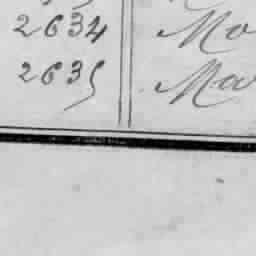 2634 Mo
2635 Mar